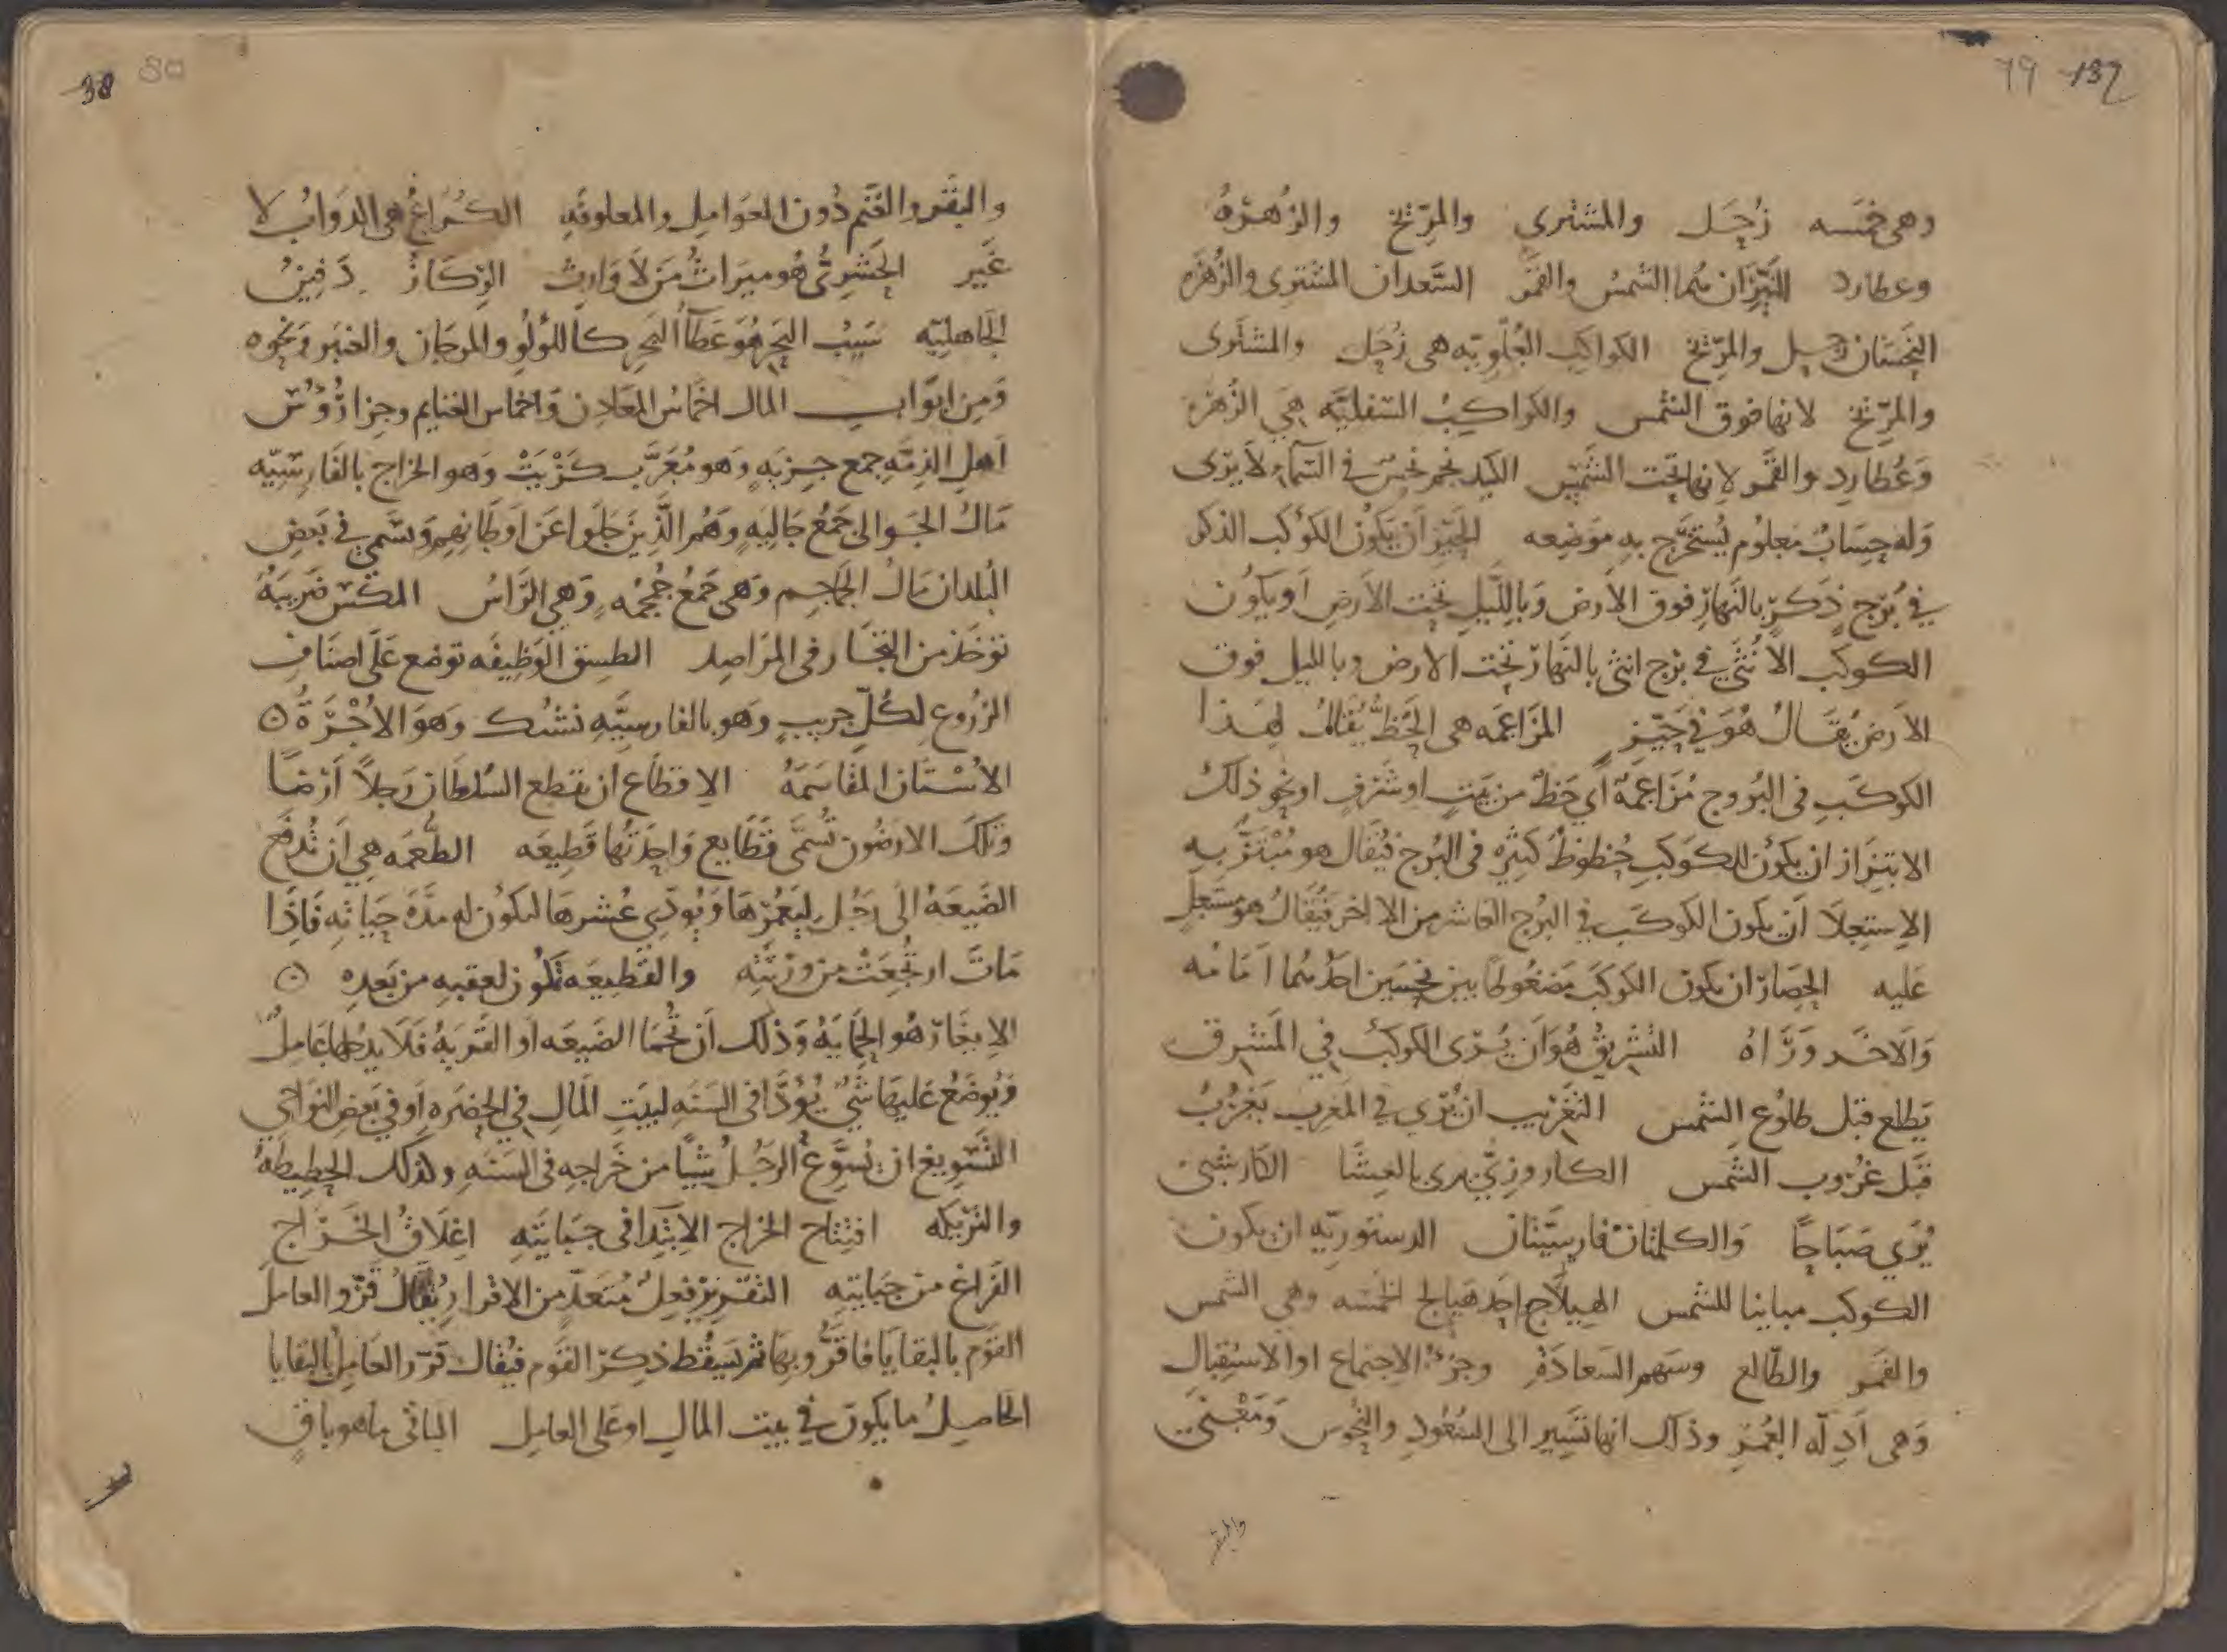 79 137
وهى خمسه زُحَل والمشترى والمرّيخ والزُهَرَةُ
وعطارد النَّيِّرَان هُما الشمسُ والقمَرُ السَّعدان المشترى والزُهَرَه
النَحسَان زحل والمرّيخ الكواكبُ العُلْوِيّه هى زُحَل والمشترى
والمرّيخ لانها فوق الشمس والكواكبُ السّفليّه هىَ الزُهَرَه
وَعُطارِد والقمَر لانها تحت الشمْسِ الكَيد نجم نحسٌ فى السّمآءِ لا يُرَى
وَله حِسَابٌ معلُوم يُستخرَج بهِ مَوضِعه الحَيِّز اَن يكوُن الكوكب الذكر
فى بُرْج ذَكرٍ بالنَهارِ فوق الاَرض وَباللَّيلِ تحت الاَرض اَو يَكوُن
الكوكب الاُنثَى فى برْج انثى بالنَهار تحت الارض وبالليل فوق
الاَرض يُقَالُ هُوَ فى حَيّزِهِ المزَاعَمَه هى الحَظُّ يُقَالُ لهَذا
الكوكَبِ فى البُروج مُزَاعمَة اَى حَظّ من بَيتٍ او شَرَفٍ او نحو ذلك
الابتِزَاز ان يكوُن للكَوكبِ حُظوظٌ كثيرَه فى البُرج فيُقَال هو مُبْتَزّ بِهِ
الاِستِعلاَ اَن يكون الكوكَب فى البُرج العَاشر من الاخر فيُقَالُ هو مسْتَعلٍ
عَليه الحِصَار ان يكون الكوكَب مَضغُوطًا بين نحْسَين احَدُهُما اَمَامَه
وَالاخَر وَرَاهُ التشرِيقُ هُوَ اَن يُرَى الكوكبُ فى المَشرق
يَطلع قبل طلوُع الشمس التغْرِيب ان يُرَى فى المَغرِب يَغرُبُ
قَبل غرُوب الشمس الكَاروزىّ يرى بالعِشَا الكَارشبى
يُرَى صَبَاحًا وَالكلمتَان فارسِيّتان الدستوريّه ان يكون
الكوكب مباينا للشمس الهِيلَاج اَحَد هَيالج الخمسَه وهى الشمس
والقمَر والطّالع وسَهم السَعادَة وجزءُ الاجتماع او الاستقبال
وَهى اَدِلّه العُمُر وذلك انها تسَير الى السُعُود والنُحُوس وَمَعْنى
والبقر
38 80
والبقَر والغَنم دُون العَوَامِل والمعلوفَهِ الكُرَاعُ هى الدوَابُ لا
غَير الحَشرِىُّ هُو ميرَاثُ مَن لَا وَارِث الرِّكَاز دَفِينُ
الجَاهليّه سَيْبُ البَحر هُوَ عَطَآُ البَحر كاللؤلُو والمرجَان والعَنبَر وَنحوه
وَمِن ابوَاب المال اخمَاسُ المعَادِن وَاخماس الغنايم وجِزَا رُؤُسِ
اَهلِ الذِمّهِ جمع جِزيَةٍ وَهو مُعَرَّب كَزْيَتْ وَهو الخراج بالفَارِسيّه
مَالُ الجَوالى جَمعُ جَالِيَةٍ وَهُم الَّذِينَ جَلَوا عَن اَوطَانِهِم وَيسَمى فى بَعضِ
البُلدان مَالُ الجمَاجِم وَهى جَمعُ جُمْجُمَه وَهى الرَاسُ المكسُ ضَريبَةٌ
توخذ من التجَار فى المَرَاصِد الطسق الوَظِيفَه توضع عَلَى اصنَافِ
الزرُوع لكُلِّ جرِيبٍ وَهو بالفارسِيَّهِ تشك وَهوَ الاُجْرَةُ
الاُسْتَان المقَاسَمَةُ الاِقطَاع ان يقطع السُلطَان رَجلاً اَرْضًا
وَتلك الارَضُون تُسَمَّى قَطَايع وَاحِدَتُهَا قَطِيعَه الطُّعمَه هى اَن تُدفَع
الضَيعَةُ الَى رَجُلٍ لِيَعْمُرَهَا وَيُودّى عُشرهَا لتكوُن له مدّةَ حَيَاتِهِ فَاِذَا
مَاتَ ارتُجِعَتْ من وَرَثَتِه والقَطِيعَه تكُون لعقبِهِ من بَعدِهِ
الايغَار هُو الحِمَايَةُ وَذلك اَن تُحمَا الضَيعَه اَو القَريَةُ فَلَا يدخلها عَامِلٌ
وَيُوضَعُ عَليهَا شَىٌ يُؤَدَّا فى السَنَه لبيَتِ المَالِ فى الحضرَهِ اَو فى بَعضِ النوَاحى
التَّسْوِيغ ان يُسَوَّغ الرَجُلُ شيًا من خَراجِهِ فى السَنَهِ وكذلك الحطِيطَةُ
والتَرِيكه افتِتاح الخراج الاِبتِدَا فى جبَايَتِهِ اغلَاقُ الخَرَاج
الفَرَاغ من جبَايَتِهِ التقْرِيرُ فِعلٌ مُتعَدّ من الاقرارِ يُقَالُ قَرّر العامل
القَوم بالبقايَا فاقَرُّوا بِهَا ثمّ يَسقُط ذِكر القَوم فيُقَال قرّر العَامِلُ بالبقايا
الحَاصِلُ ما يكون فى بيت المَال او عَلى العامِل الباقى ما هو باقٍ